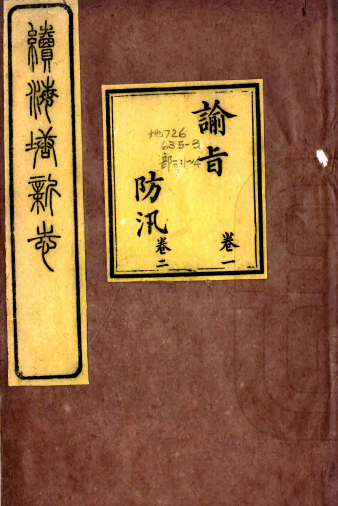 續海塘新志
諭旨 卷一
防汛 卷二
地726
635-3